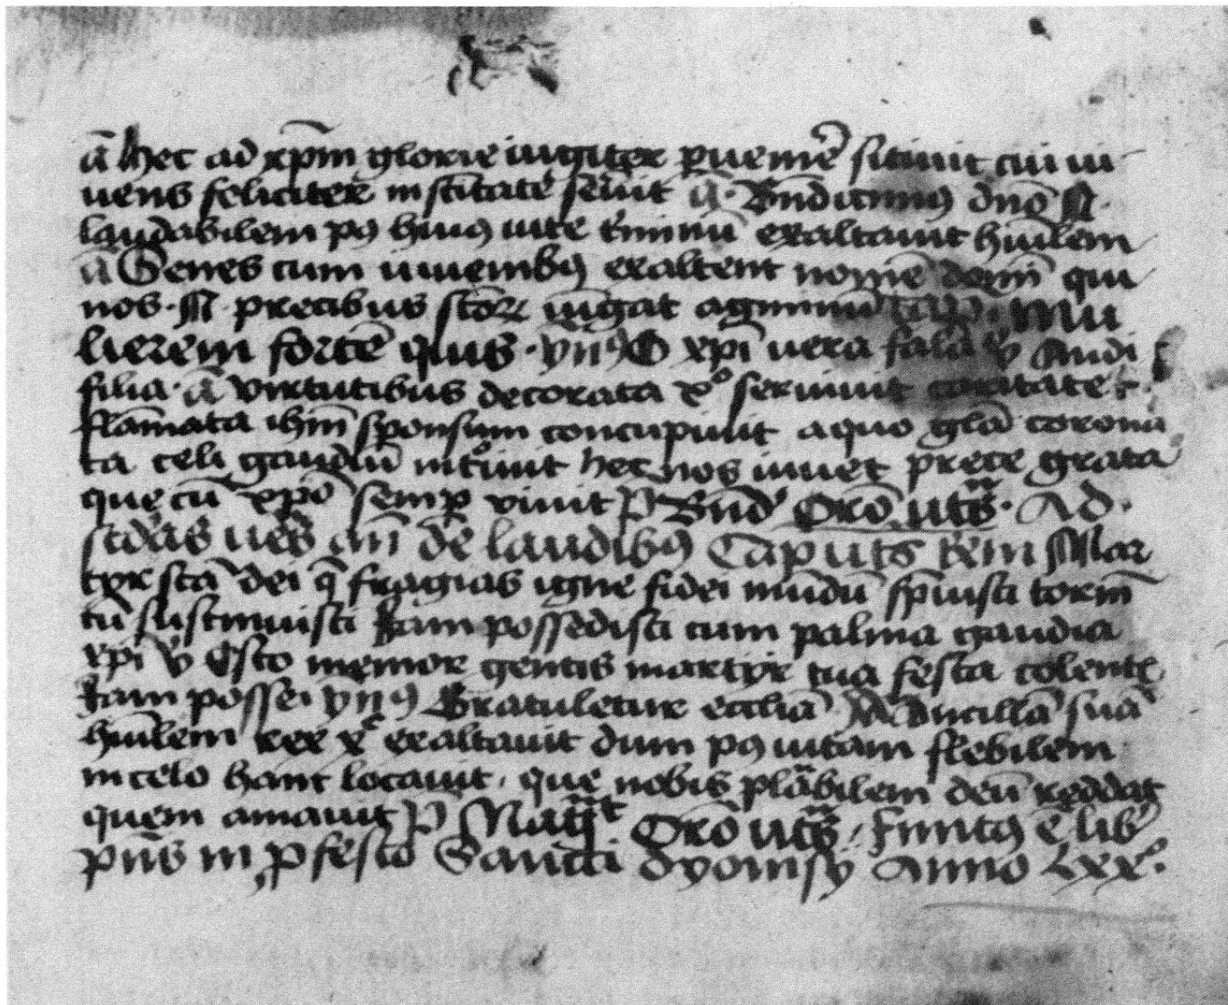 ā hec ad xp̄m glorie iugiter ꝑuenir̄e sitiuit cui ui
uens feliciter in sc̄titate seruit ā. Bn̄dicimus dn̄o N.
laudabilem pꝰ huiꝰ uite t̄minū exaltauit hūilem
ā Senes cum iuuenibꝰ exaltent nomē dom̄i qui
nos. N. precibus sc̄toꝝ iūgat agminū Mu
lierem fortē quis. ynꝰ O xp̄i uera fa℣ Audi
filia. ā virtutibus decorata xº seruiuit caritate
flāmata ih̄m sponsum concupiuit a quo gl̄a corona
ta celi gaudiū int̄uit hec nos iuuet prece grata
que cū xp̄o semꝑ viuit P̄ Bn̄d Orō ut sͣ. Ad
sc̄das ues̄ an̄ de laudibꝰ Cap ut sͣ Mar
tyr sc̄a dei q̄ fragias igne fidei mūdū sp̄uisti torm̄
tū sustinuisti possedisti cum palma gaudia
xp̄i ℣ Esto memor gentis martyr tua festa colent̄
possei ynꝰ Gratuletur eccl̄ia Ancillā suā
hūilem rex xº exaltauit dum pꝰ uitam flebilem
in celo hanc locauit. que nobis pl̄abilem deū reddat
quem amauit P̄ Orō ut sͣ. Finitꝰ ē lib̄
p̄ns in ꝓfesto Sancti dyonisy Anno Lxxº.